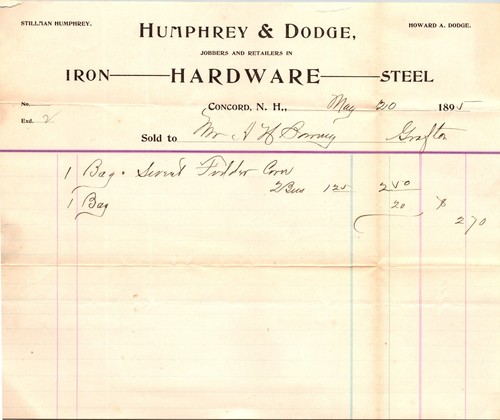 STILLMAN HUMPHREY. HOWARD A. DODGE.
HUMPHREY & DODGE,
JOBBERS AND RETAILERS IN
IRON HARDWARE STEEL
No. CONCORD, N. H., May 20 1895
Exd. 2
Sold to Mr A H Barney Grafton
1 Bag Fodder Corn
2 Bus 125 2 50
1 Bag 20 $
2 70